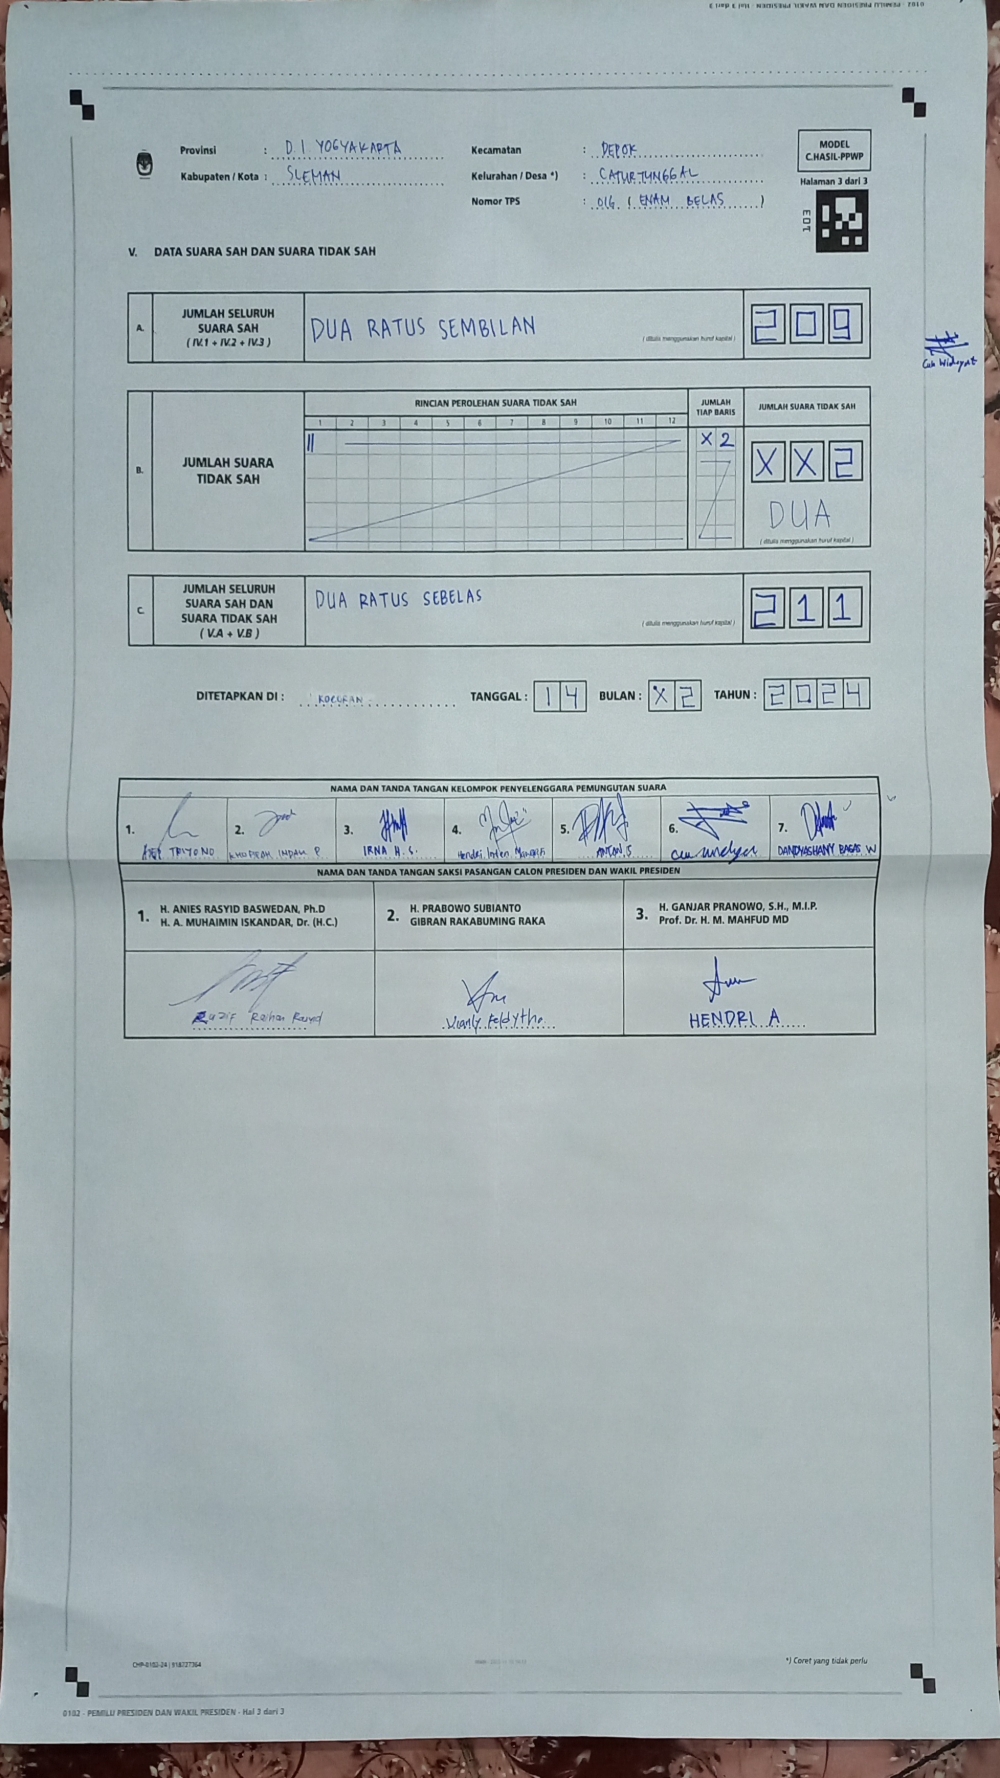 0102 - PEMILU PRESIDEN DAN WAKIL PRESIDEN - Hal 3 dari 3
Provinsi : D.I. YOGYAKARTA
Kabupaten / Kota : SLEMAN
Kecamatan : DEPOK
Kelurahan / Desa *) : CATURTUNGGAL
Nomor TPS : 016 ( ENAM BELAS )
MODEL
C.HASIL-PPWP
Halaman 3 dari 3
V. DATA SUARA SAH DAN SUARA TIDAK SAH
A. JUMLAH SELURUH
SUARA SAH
( IV.1 + IV.2 + IV.3 )
DUA RATUS SEMBILAN
( ditulis menggunakan huruf kapital )
209
B. JUMLAH SUARA
TIDAK SAH
RINCIAN PEROLEHAN SUARA TIDAK SAH
1 2 3 4 5 6 7 8 9 10 11 12
JUMLAH
TIAP BARIS
X 2
JUMLAH SUARA TIDAK SAH
X X 2
DUA
( ditulis menggunakan huruf kapital )
C. JUMLAH SELURUH
SUARA SAH DAN
SUARA TIDAK SAH
( V.A + V.B )
DUA RATUS SEBELAS
( ditulis menggunakan huruf kapital )
211
DITETAPKAN DI : TANGGAL : 14 BULAN : X2 TAHUN : 2024
NAMA DAN TANDA TANGAN KELOMPOK PENYELENGGARA PEMUNGUTAN SUARA
1. TRIYONO
2. INDAH P.
3. IRNA H.S.
4. Hendri
5. ANTON.S
6.
7. DANDYASHANY BAGAS W
NAMA DAN TANDA TANGAN SAKSI PASANGAN CALON PRESIDEN DAN WAKIL PRESIDEN
1. H. ANIES RASYID BASWEDAN, Ph.D
H. A. MUHAIMIN ISKANDAR, Dr. (H.C.)
2. H. PRABOWO SUBIANTO
GIBRAN RAKABUMING RAKA
3. H. GANJAR PRANOWO, S.H., M.I.P.
Prof. Dr. H. M. MAHFUD MD
Raihan Rasyid
HENDRI A
*) Coret yang tidak perlu
0102 - PEMILU PRESIDEN DAN WAKIL PRESIDEN - Hal 3 dari 3